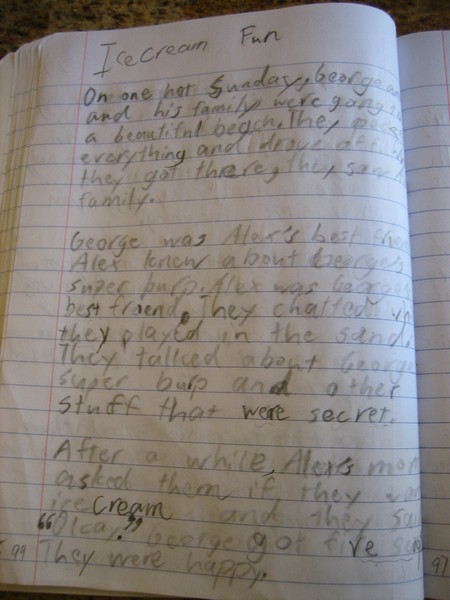 Ice cream Fun
On one hot Sunday, George
and his family were going
a beautiful beach. They
everything and drove off.
they got there, they saw
family.
George was Alex's best
Alex knew about George's
super burp. Alex was George's
best friend. They chatted
they played in the sand.
They talked about George
super burp and other
stuff that were secret.
After a while, Alex's mom
asked them if they
ice cream and they
"Okay." George got five
They were happy.
99
97